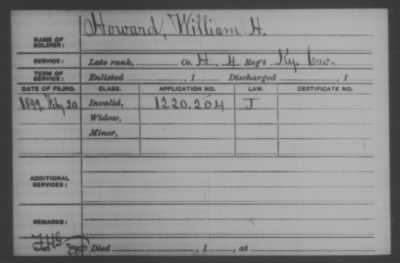 Howard, William H.
NAME OF SOLDIER:
SERVICE: Late rank, Co. H, 4 Reg't Ky. Cav.
TERM OF SERVICE: Enlisted , 1 Discharged , 1
DATE OF FILING. CLASS. APPLICATION NO. LAW. CERTIFICATE NO.
1899, Feby 20 Invalid, 1220.204 J
Widow,
Minor,
ADDITIONAL SERVICES:
REMARKS:
Died , 1 , at